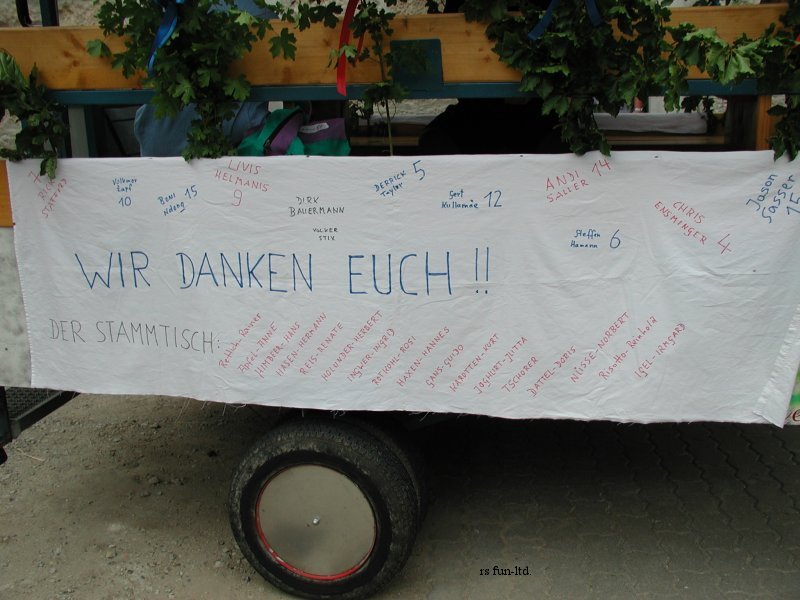 7
RICK
STAFFORD
Volkmar
Zapf
10
BENI 15
Ndong
LIVIS
HELMANIS
9
DIRK
BAUERMANN
VOLKER
STIX
DERRICK 5
Taylor
Gert 12
Kullamäe
ANDI 14
SALLER
Steffen 6
Hamann
CHRIS
ENSMINGER 4
Jason
Sasser
15
WIR DANKEN EUCH !!
DER STAMMTISCH:
Rettich-Rainer
HIMBEER-HANS
HASEN-HERMANN
REIS-RENATE
HOLUNDER-HERBERT
INGWER-INGRID
ROTKOHL-ROSI
HAXEN-HANNES
GANS-GUIDO
KAROTTEN-KURT
JOGHURT-JUTTA
TSCHORER
DATTEL-DORIS
NÜSSE-NORBERT
Risotto-Reinhold
IGEL-IRMGARD
rs fun-ltd.